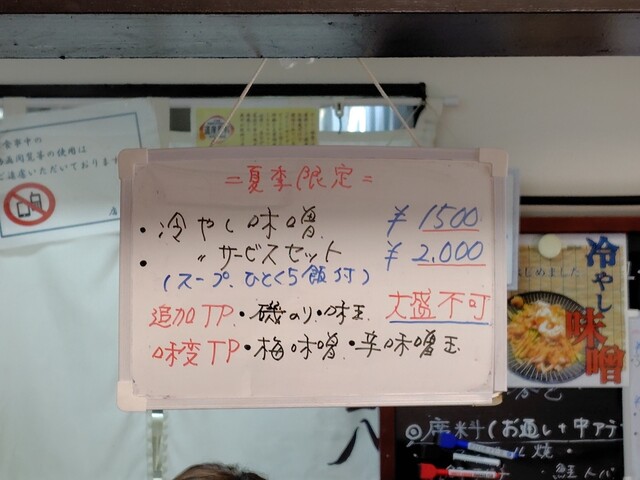 =夏季限定=
・冷やし味噌 ¥1500
・〃 サービスセット ¥2,000
(スープ、ひとくち飯付)
追加TP・磯のり・味玉 大盛不可
味変TP・梅味噌・辛味噌玉
食事中の
動画閲覧等の使用は
ご遠慮いただいております
店
冷やし味噌
はじめました
◎席料(お通し+中アテ
ル焼・